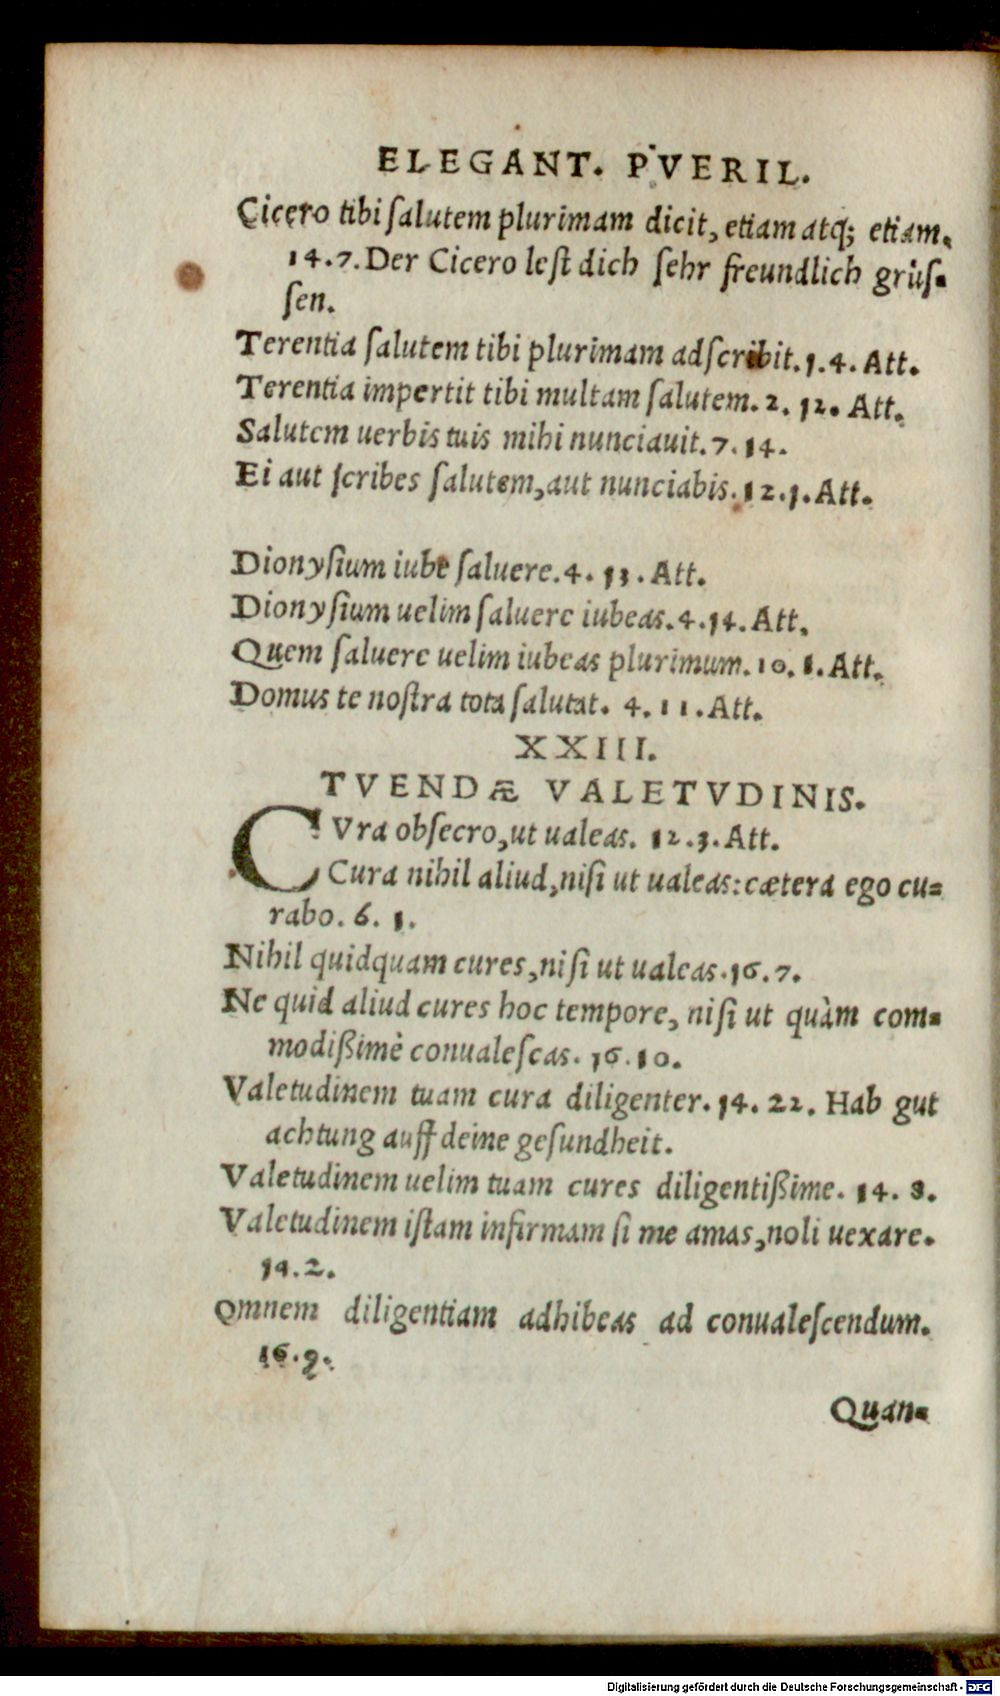 ELEGANT. PVERIL.
Cicero tibi ſalutem plurimam dicit, etiam atq; etiam.
14.7. Der Cicero leſt dich ſehr freundlich grüſ-
ſen.
Terentia ſalutem tibi plurimam adſcribit. 1.4. Att.
Terentia impertit tibi multam ſalutem. 2. 12. Att.
Salutem uerbis tuis mihi nunciauit. 7. 14.
Ei aut ſcribes ſalutem, aut nunciabis. 12.1. Att.
Dionyſium iube ſaluere. 4. 13. Att.
Dionyſium uelim ſaluere iubeas. 4.14. Att.
Quem ſaluere uelim iubeas plurimum. 10. Att.
Domus te noſtra tota ſalutat. 4. 11. Att.
XXIII.
TVENDÆ VALETVDINIS.
CVra obſecro, ut ualeas. 12.3. Att.
Cura nihil aliud, niſi ut ualeas: cætera ego cu-
rabo. 6. 1.
Nihil quidquam cures, niſi ut ualeas. 16. 7.
Ne quid aliud cures hoc tempore, niſi ut quàm com-
modißimè conualeſcas. 16. 10.
Valetudinem tuam cura diligenter. 14. 22. Hab gut
achtung auff deine geſundheit.
Valetudinem uelim tuam cures diligentißime. 14. 8.
Valetudinem iſtam infirmam ſi me amas, noli uexare.
14.2.
Omnem diligentiam adhibeas ad conualeſcendum.
16.9.
Quan-
Digitalisierung gefördert durch die Deutsche Forschungsgemeinschaft - DFG